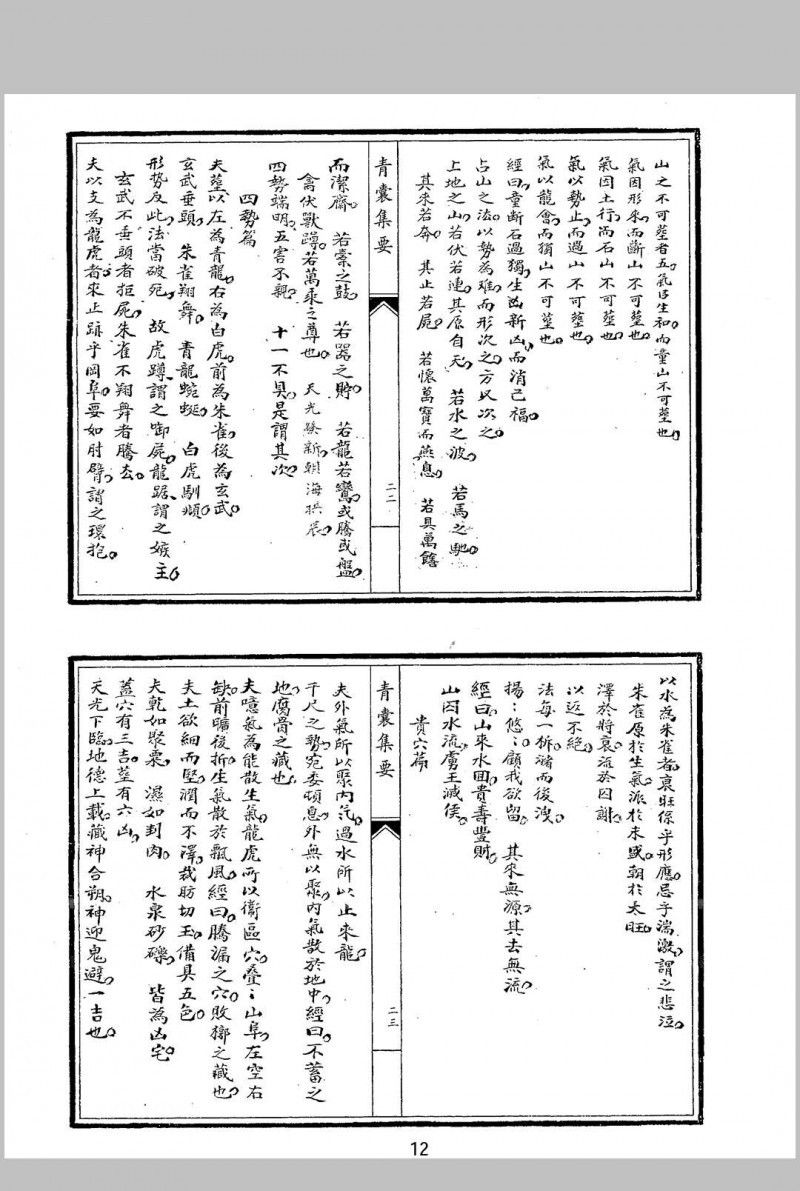 山之不可塟者五。氣以生和而童山不可塟也。
氣因形來而斷山不可塟也。
氣因土行而石山不可塟也。
氣以勢止而過山不可塟也。
氣以龍會而獨山不可塟也。
經曰童斷石過獨生凶新凶而消己福。
占山之法以勢為難而形次之方又次之。
上地之山若伏若連其原自天。若水之波 若馬之馳。
其來若奔 其止若屍 若懷萬寶而燕息 若具萬饍
青囊集要
二二
而潔齋 若橐之鼓 若器之貯 若龍若鸞或騰或盤
禽伏獸蹲若萬乘之尊也 天光發新朝海拱辰
四勢端明五害不親 十一不具是謂其次
四勢篇
夫塟以左為青龍右為白虎前為朱雀後為玄武
玄武垂頭 朱雀翔舞 青龍蜿蜒 白虎馴頫
形勢反此法當破死 故虎蹲謂之啣屍龍踞謂之嫉主
玄武不垂頭者拒屍朱雀不翔舞者騰去
夫以支為龍虎者來止跡乎岡阜要如肘臂謂之環抱。
以水為朱雀者衰旺係乎形應忌乎湍激謂之悲泣
朱雀原於生氣派於未盛朝於太旺
澤於將衰流於囚謝
以返不絕
法每一折瀦而後洩
揚：悠：顧我欲留 其來無源其去無流
經曰山來水囬貴壽豐財
山囚水流虜王滅侯
貴穴篇
青囊集要
二三
夫外氣所以聚內氣過水所以止來龍
千尺之勢宛委頓息外無以聚內氣散於地中經曰不蓄之
地腐骨之藏也
夫噫氣為能散生氣龍虎所以衛區穴叠：山阜左空右
缺前曠後折生氣散於飄風經曰騰漏之穴敗槨之藏也
夫土欲細而堅潤而不澤裁肪切玉備具五色
夫乾如聚粟 濕如刲肉 水泉砂礫 皆為凶宅
蓋穴有三吉塟有六凶
天光下臨地德上載藏神合朔神迎鬼避一吉也
12